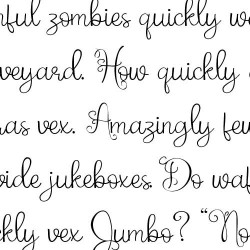 nful zombies quickly w
veyard. How quickly
as vex. Amazingly few
vide jukeboxes. Do waf
kly vex Jumbo? “No